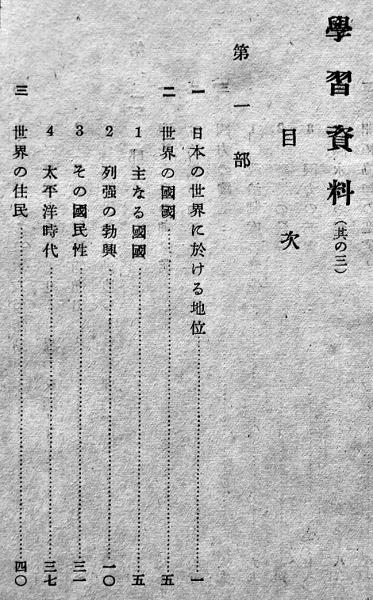 學習資料(其の三)
目次
第一部
一 日本の世界に於ける地位……一
二 世界の國國……五
1 主なる國國……五
2 列強の勃興……一〇
3 その國民性……三一
4 太平洋時代……三七
三 世界の住民……四〇